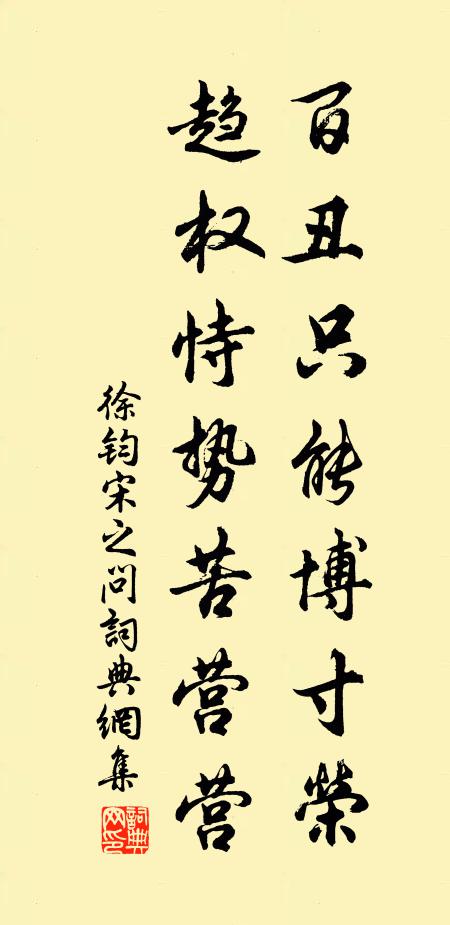 百丑只能博寸榮
趋权恃势苦营营
徐钧宋之问詞典網集
詞典网印